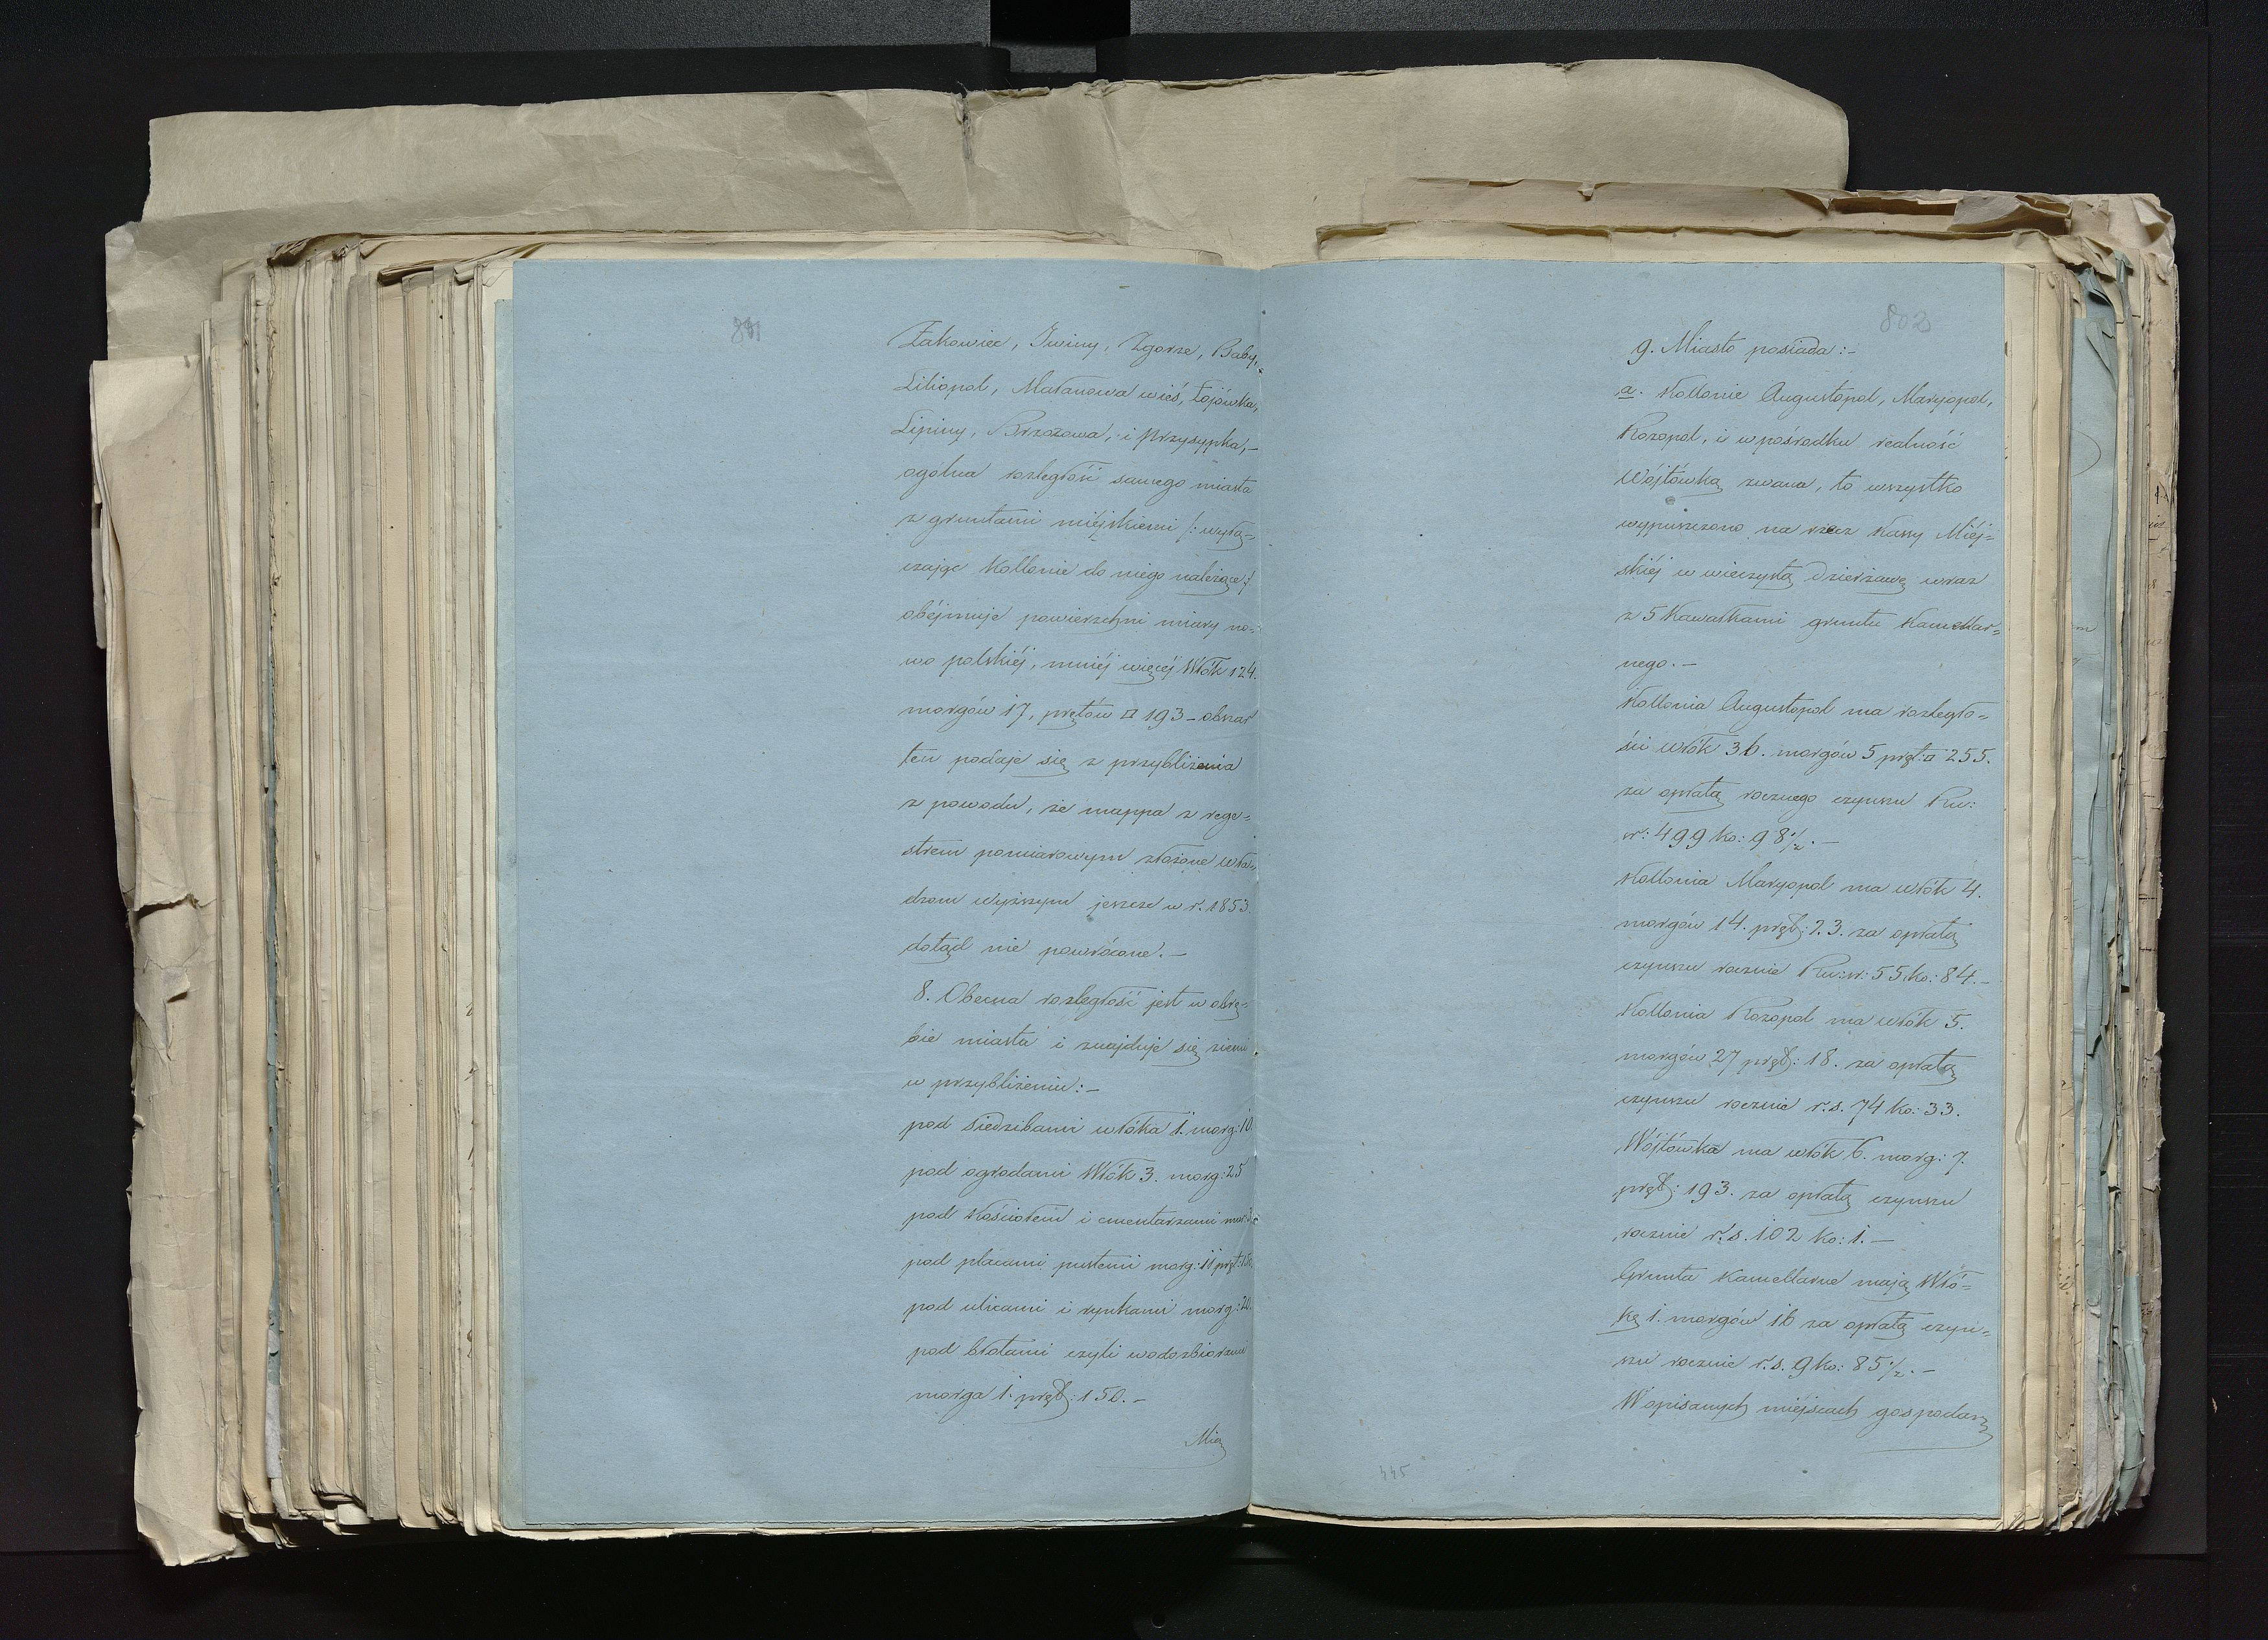 801
Żakowiec, Iwiny, Zgorze, Baby,
Liliopol, Matanowa wieś, Łojówka,
Lipiny, Brzozowa, i Przysypka,–
ogólna rozległość samego miasta
z gruntami miéjskiemi /: wyłą=
czając Kollonie do niego należące:/
obéjmuje powierzchni miary no=
wo polskiéj, mniéj więcéj Włók 124.
morgów 17, prętów □ 193 – obszar
ten podaje się z przybliżenia
z powodu, że mappa z rege=
strem pomiarowym złożone Wła=
dzom wyższym jeszcze w r. 1853.
dotąd nie powrócone.–
8. Obecna rozległość jest w obrę=
bie miasta i znajduje się ziemi
w przybliżeniu:–
pod siedzibami włóka 1. morg: 10.
pod ogrodami Włók 3. morg: 25
pod Kościołem i cmentarzami mor: 3
pod placami pustemi morg: 11 pręt: 150
pod ulicami i rynkami morg: 20.
pod błotami czyli wodozbiorami
morga 1. pręt: 150.–
Mia
802
9. Miasto posiada:–
a. Kollonie Augustopol, Maryopol,
Rozopol, i w pośrodku realność
Wójtówką zwana, to wszystko
wypuszczono na rzecz Kassy Miéj=
skiéj w wieczystą dzierżawę wraz
z 5 Kawałkami gruntu Kamellar=
nego.–
Kollonia Augustopol ma rozległo=
ści włók 36. morgów 5 pręt: □ 255.
za opłatą rocznego czynszu Ru:
sr: 499 ko: 98 1/2.–
Kollonia Maryopol ma włók 4.
morgów 14. pręt: 23. za opłatą
czynszu rocznie Ru: sr: 55 ko: 84.–
Kollonia Rozopol ma włók 5.
morgów 27 pręt: 18. za opłatą
czynszu rocznie r.s. 74 ko: 33.
Wójtówka ma włók 6. morg: 7.
pręt: 193. za opłatą czynszu
rocznie r.s. 102 ko: 1.–
Grunta Kamellarne mają Włó=
kę 1. morgów 16 za opłatą czyn=
szu rocznie r.s. 9 ko: 85 1/2.–
W opisanych miejscach gospodarz
445